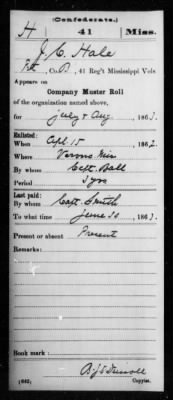 (Confederate.)
H 41 Miss.
J. C. Hale
Pvt, Co. B, 41 Reg't Mississippi Vols
Appears on
Company Muster Roll
of the organization named above,
for July & Aug, 1863.
Enlisted:
When Apl 15, 1862.
Where Verona Mis
By whom Capt. Ball
Period 3 yrs
Last paid:
By whom Capt. Smith
To what time June 30, 1863.
Present or absent Present
Remarks:
Book mark:
(642) Copyist.